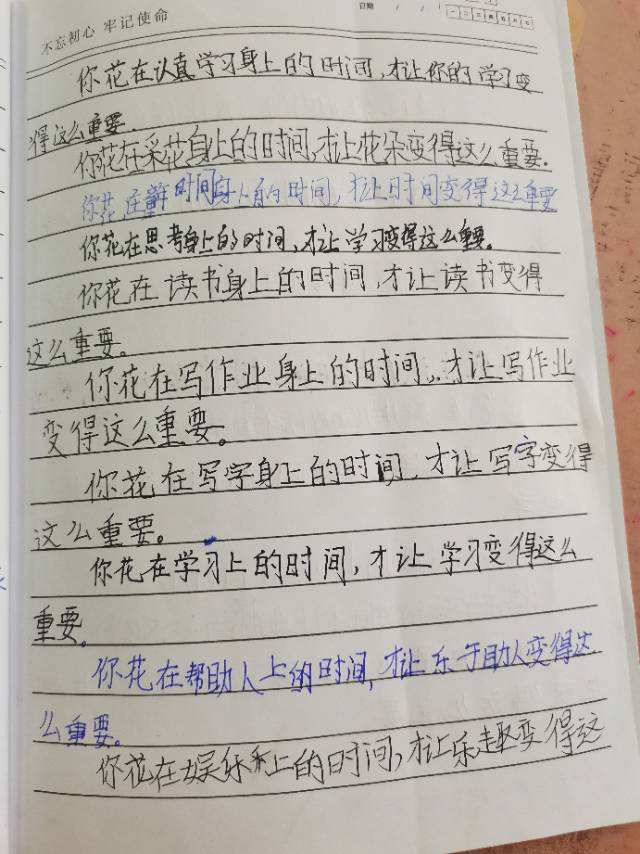 不忘初心 牢记使命
日期
一 二 三 四 五 六 日
你花在认真学习身上的时间,才让你的学习变
得这么重要.
你花在采花身上的时间,才让花朵变得这么重要.
你花在 时间身上的时间,才让时间变得这么重要
你花在思考身上的时间,才让学习变得这么重要。
你花在读书身上的时间,才让读书变得
这么重要。
你花在写作业身上的时间,才让写作业
变得这么重要。
你花在写字身上的时间,才让写字变得
这么重要。
你花在学习上的时间,才让学习变得这么
重要。
你花在帮助人上的时间,才让乐于助人变得这
么重要。
你花在娱乐上的时间,才让乐趣变得这